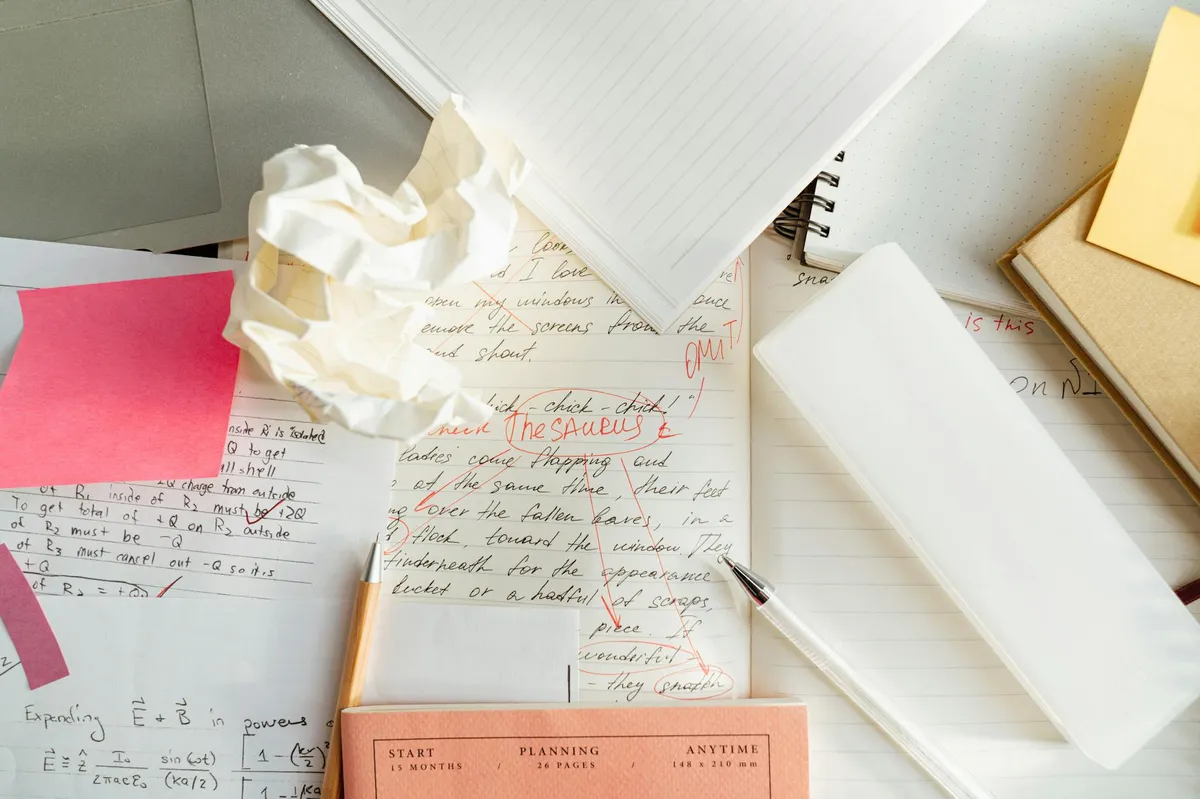 I love
open my windows in once
emove the screens from the
and shout.
OMIT
hick - chick - chick!"
check THESAURUS
ladies come flapping and
at the same time, their feet
ng over the fallen leaves, in a
flock, toward the window. They
underneath for the appearance
bucket or a hatful of scraps,
piece. If
wonderful -
- they snatch
sna
is this
on
nside R is isolated
Q to get
all shell
+2Q charge from outside
of R1 inside of R2 must be +2Q
To get total of +Q on R2 outside
of R2 must be -Q
of R3 must cancel out -Q so it's
+Q
of R2 = +2Q
Expanding E + B in powers
E ≅ ẑ I0 / 2πacε0 sin(ωt) / (ka/2) [1 - (kr/2)²
START PLANNING ANYTIME
15 MONTHS / 26 PAGES / 148 x 210 mm